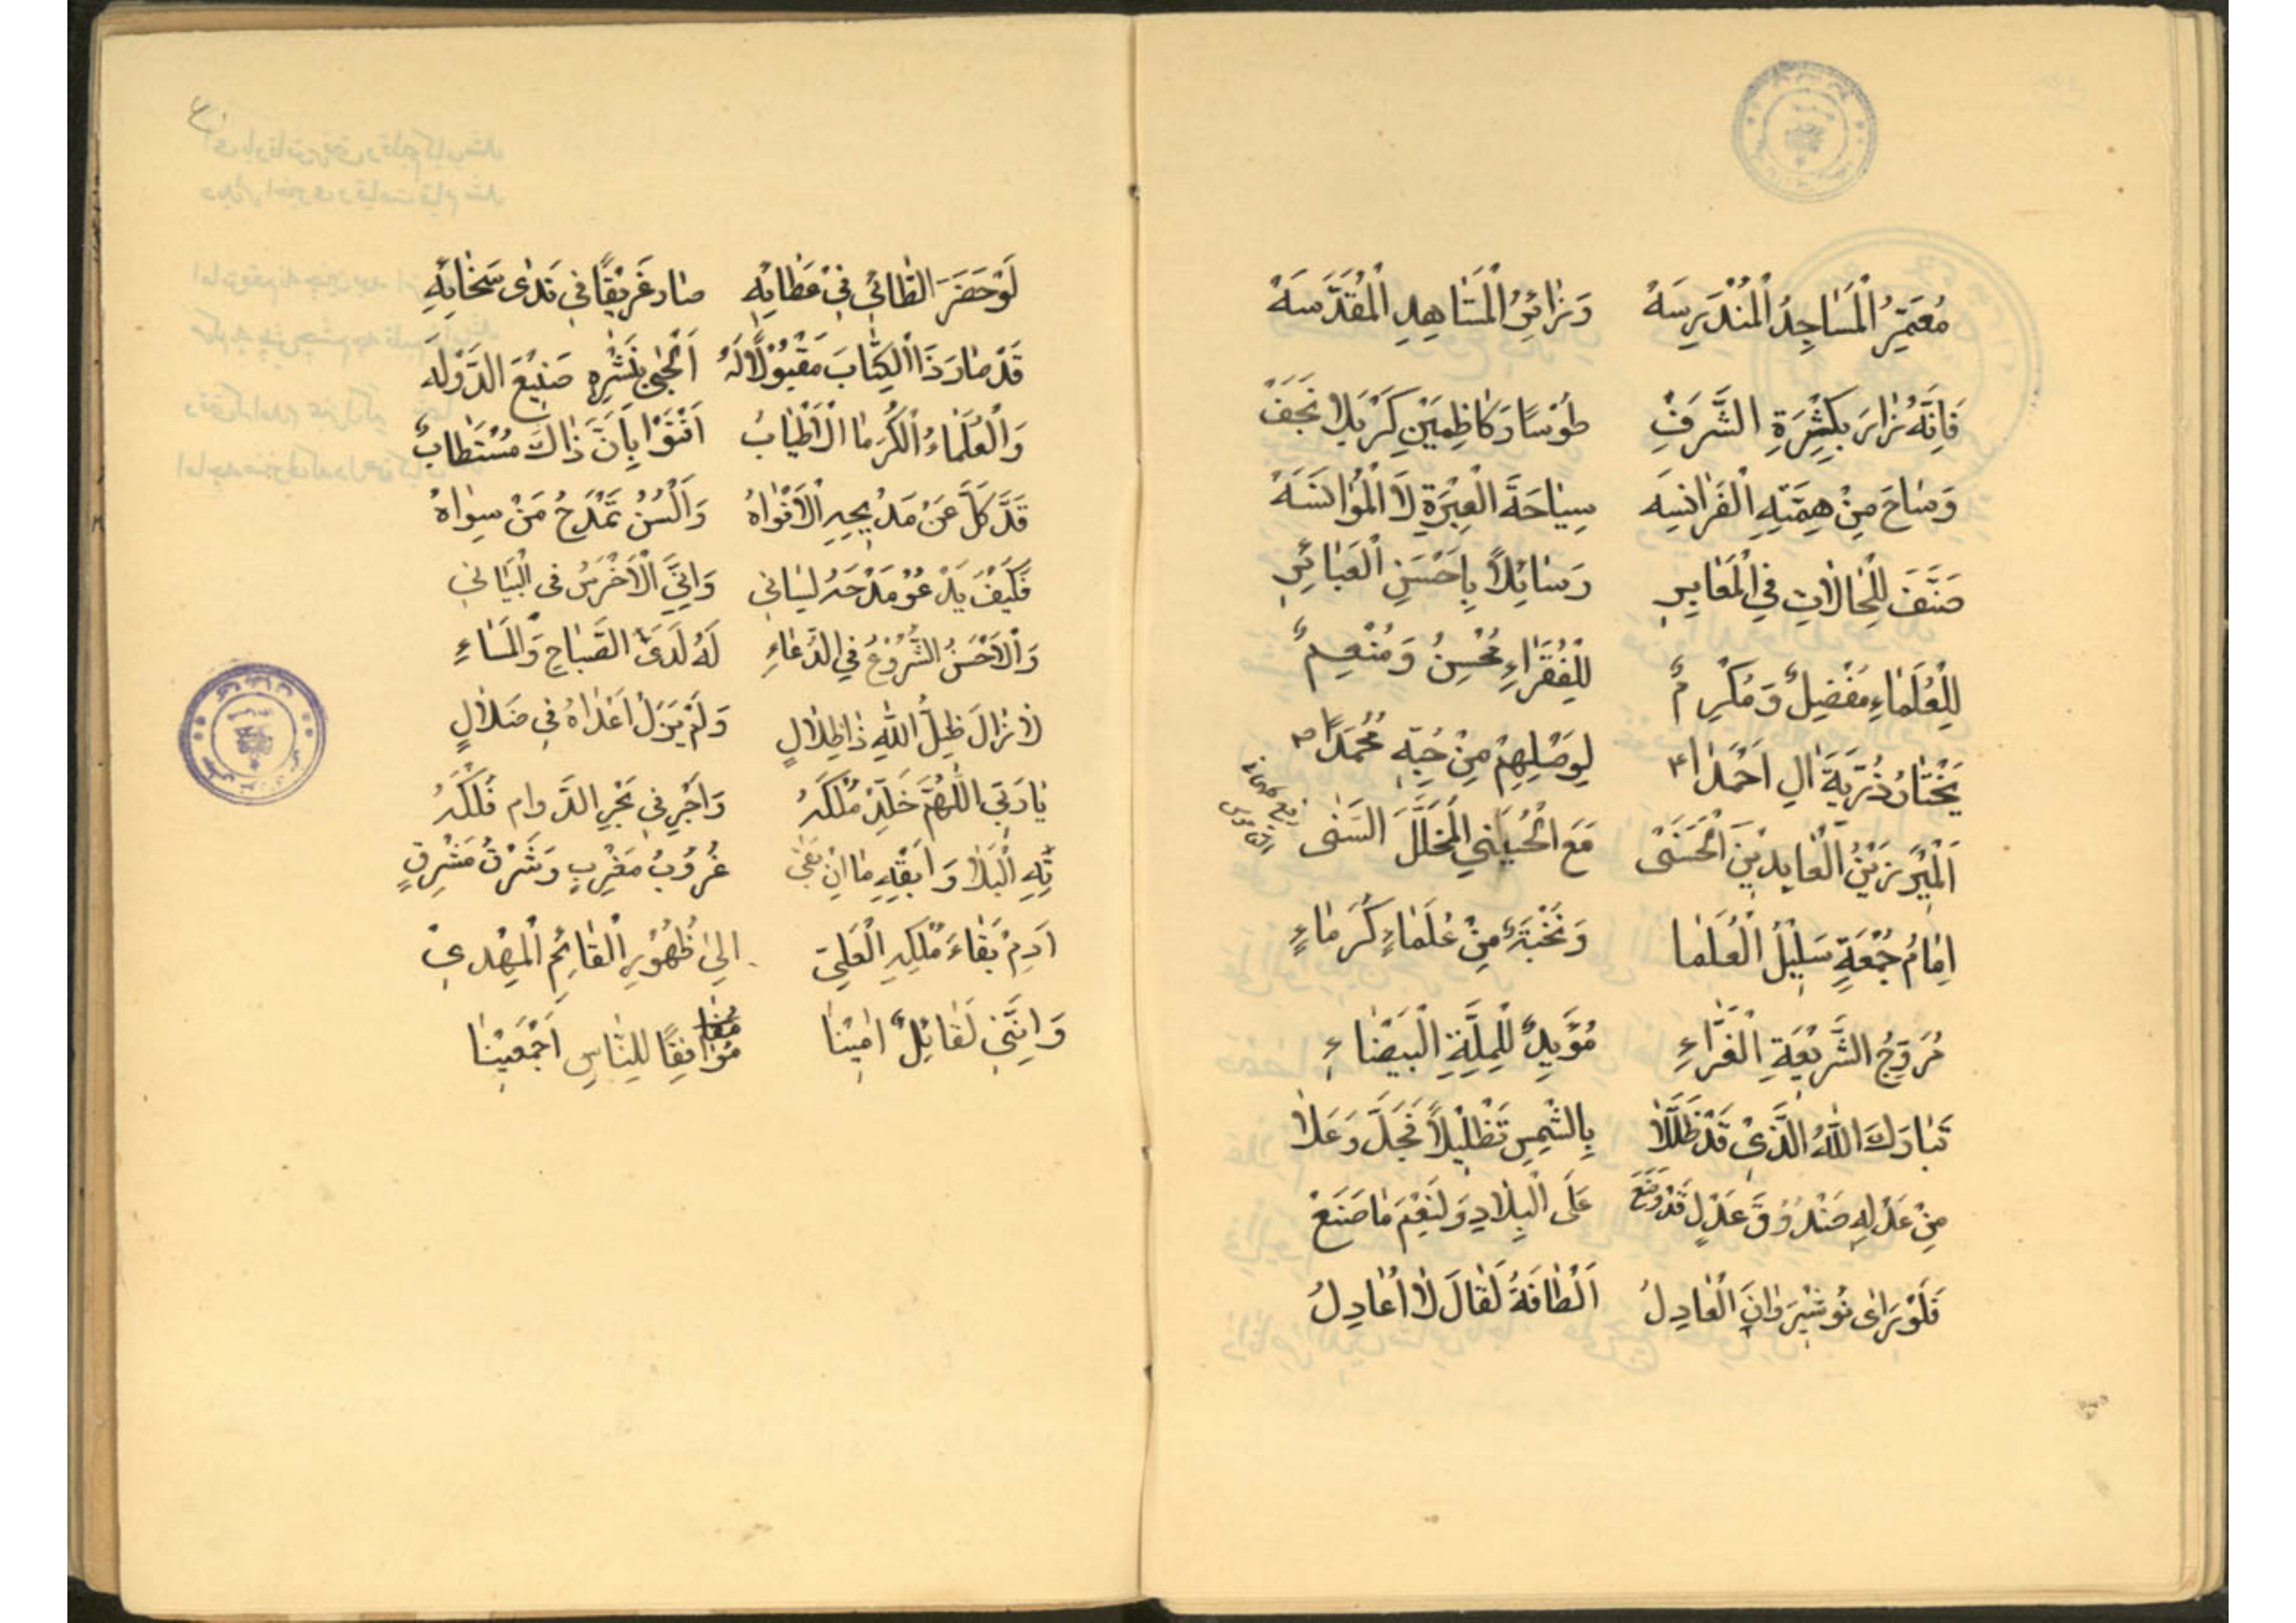 مُعَمِّرُ الْمَسَاجِدِ الْمُنْدَرِسَهْ وَزَائِرُ الْمَشَاهِدِ الْمُقَدَّسَهْ
فَإِنَّهُ زَارَ بِكَثْرَةِ الشَّرَفِ طُوْسًا وَكَاظِمَيْنِ كَرْبَلَا نَجَفْ
وَسَاحَ مِنْ هِمَّتِهِ الْفَرَانِسَه سِيَاحَةَ الْعِبْرَةِ لَا الْمُؤَانَسَهْ
صَنَّفَ لِلْحَالَاتِ فِي الْمَعَابِرِ رَسَائِلًا بِاَحْسَنِ الْعَبَائِرِ
لِلْعُلَمَاءِ مُفْضِلٌ وَمُكْرِمٌ لِلْفُقَرَاءِ مُحْسِنٌ وَمُنْعِمٌ
يَخْتَارُ ذُرِّيَّةَ الِ اَحْمَدَا لِوَصْلِهِمْ مِنْ حُبِّهِ مُحَمَّدًا
اَلْمِيْرُ زَيْنُ الْعَابِدِيْنَ الْحَسَنَى مَعَ الْحُسَيْنِي الْمُخَلَّلَ السَّنٰى
اِمَامُ جُمْعَةٍ سَلِيْلُ الْعُلَمَا وَنُخْبَةٌ مِنْ عُلَمَاءٍ كُرَمَاءٍ
مُرَوِّجُ الشَّرِيْعَةِ الْغَرَّاءِ مُؤَيِّدٌ لِلْمِلَّةِ الْبَيْضَاءِ
تَبَارَكَ اللهُ الَّذِيْ قَدْ ظَلَّلَا بِالشَّمْسِ تَظْلِيْلًا فَجَلَّ وَعَلَا
مِنْ عَدْلِهِ صَنْدُوْقَ عَدْلٍ قَدْ وَضَعْ عَلَى الْبِلَادِ وَلَنِعْمَ مَا صَنَعْ
فَلَوْ يَرَاى نُوشِيْرَوَانَ الْعَادِلُ اَلْطَافَهُ لَقَالَ لَا اُعَادِلُ
لَوْ حَضَرَ الطَّائِيُ فِيْ عَطَايِهِ صَارَ غَرِيْقًا فِي نَدٰى سَخَايِهِ
قَدْ صَارَ ذَا الْكِتَابَ مَقْبُوْلًا لَهُ اَلْحَىْ بِنَشْرِهِ صَنِيْعَ الدَّوْلَه
وَالْعُلَمَاءُ الْكُرَمَا الْاَطْيَابُ اَفْتَوْا بِاَنَّ ذَاكَ مُسْتَطَابٌ
قَدْ كَلَّ عَنْ مَدِيْحِهِ الْاَفْوَاهُ وَاَلْسُنٌ تَمْدَحُ مَنْ سِوَاهُ
فَكَيْفَ يَدْعُوْ مَدْحَهُ لِسَانِي وَاِنَّنِيَ الْاَخْرَسُ فِي الْبَيَانِي
وَالْاَحْسَنُ الشُّرُوْعُ فِي الدُّعَاءِ لَهُ لَدَى الصَّبَاحِ وَالْمَسَاءِ
لَا زَالَ ظِلُّ اللهِ ذَا ظِلَالٍ وَلَمْ يَزَلْ اَعْدَاهُ فِي ضَلَالٍ
يَا رَبِّيَ اللّٰهُمَّ خَلِّدْ مُلْكَهُ وَاَجْرِ فِي بَحْرِ الدَّوَامِ فُلْكَهُ
قِهِ الْبَلَا وَاَبْقِهِ مَا اِنْ بَقِيَ غُرُوْبُ مَغْرِبٍ وَشَرْقُ مَشْرِقٍ
اَدِمْ بَقَاءَ مُلْكِهِ الْعَلِيّ اِلٰى ظُهُوْرِ الْقَائِمِ الْمَهْدِيْ
وَاِنَّنِي لَقَائِلٌ اٰمِيْنَا مُوَافِقًا لِلنَّاسِ اَجْمَعِيْنَا